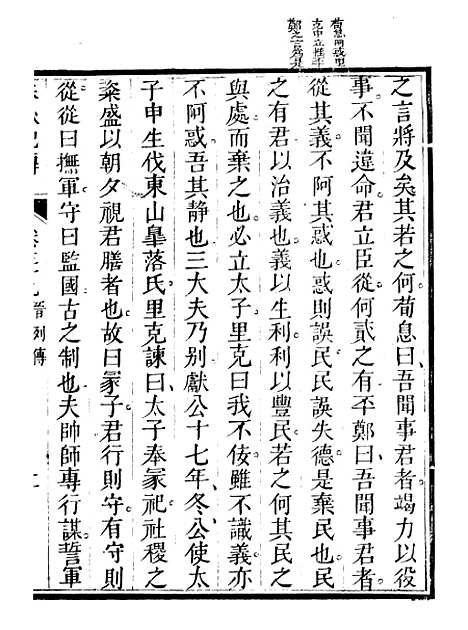 荀息阿設里
克中立惟丕
鄭之言爲是
之言將及矣其若之何荀息曰吾聞事君者竭力以役
事不聞違命君立臣從何貳之有丕鄭曰吾聞事君者
從其義不阿其惑也惑則誤民民誤失德是棄民也民
之有君以治義也義以生利利以豐民若之何其民之
與處而棄之也必立太子里克曰我不佞雖不識義亦
不阿惑吾其静也三大夫乃别獻公十七年冬公使太
子申生伐東山皐落氏里克諫曰太子奉冢祀社稷之
粢盛以朝夕視君膳者也故曰冢子君行則守有守則
從從曰撫軍守曰監國古之制也夫帥師專行謀誓軍
晉列傳